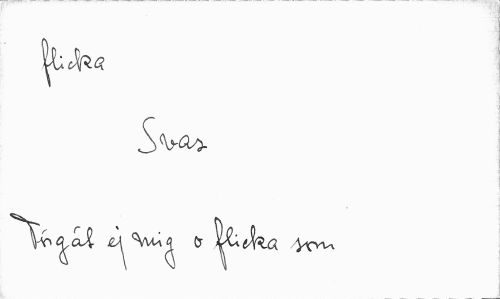 flicka
Svar
Törgát ej mig o flicka som